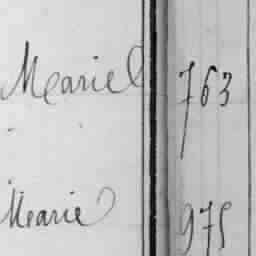 Marie 763
Marie 975